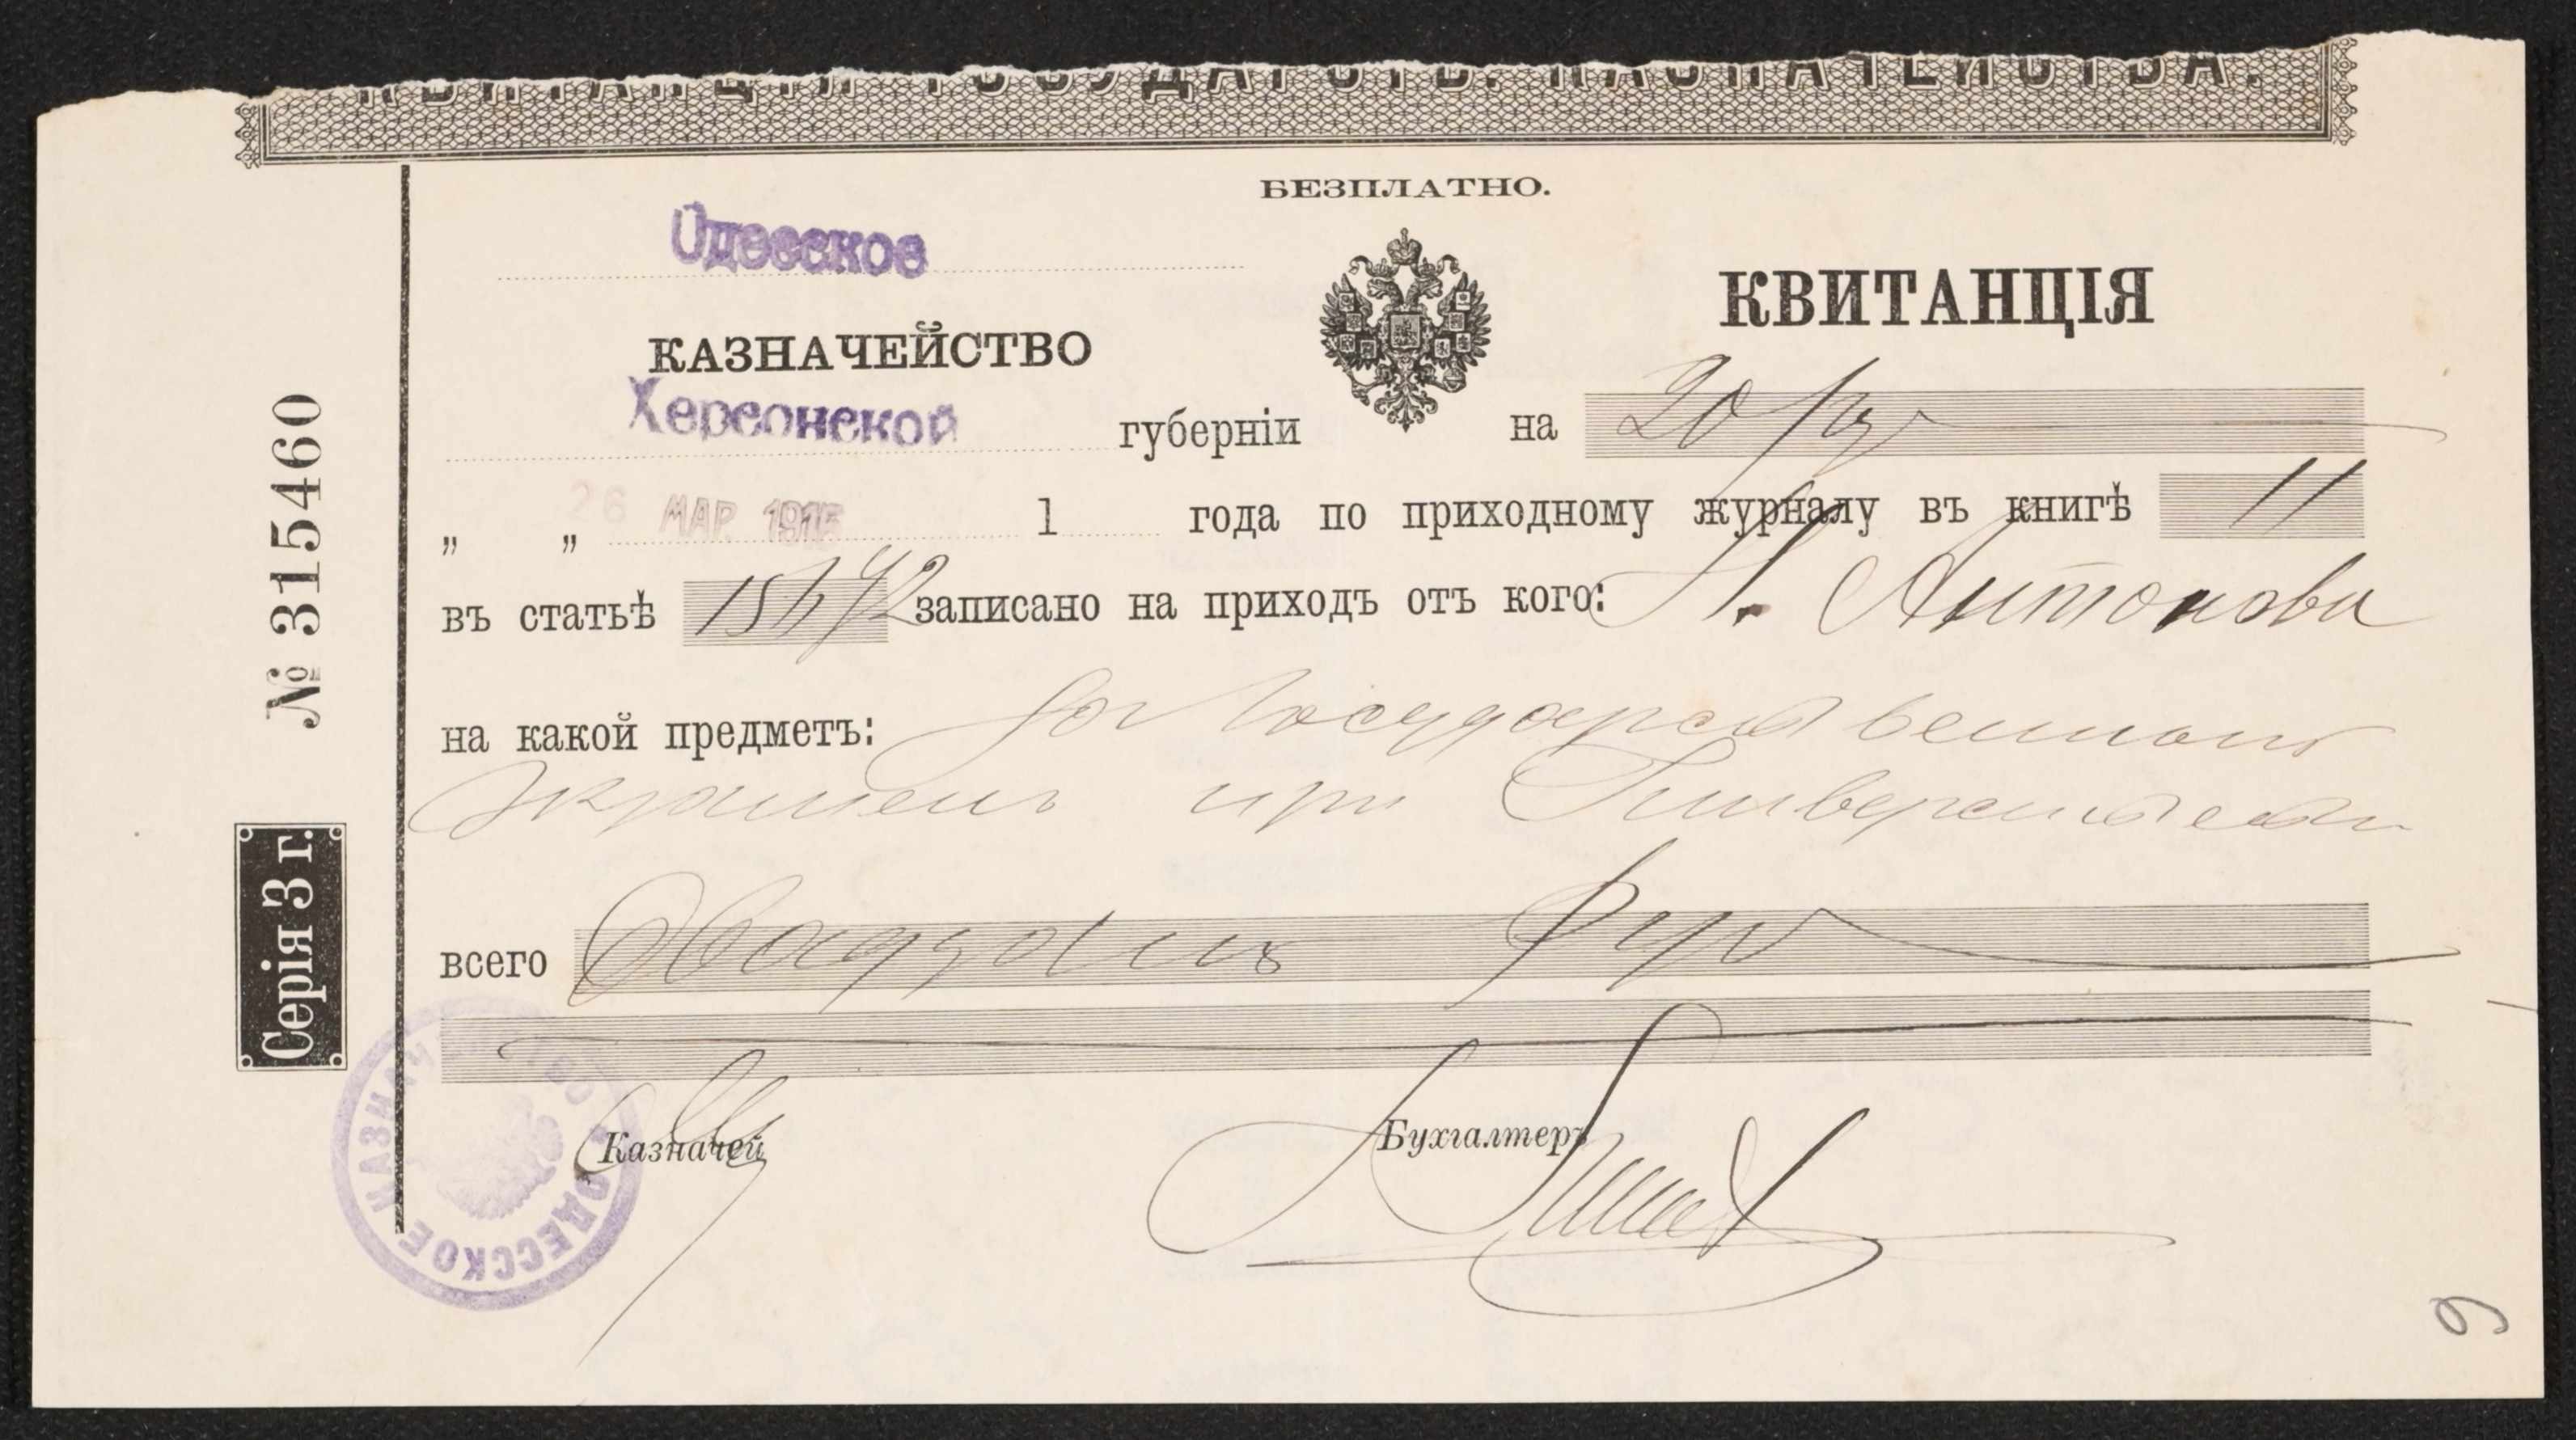 КВИТАНЦІЯ ГОСУДАРСТВ. КАЗНАЧЕЙСТВА.
БЕЗПЛАТНО.
Одесское
КАЗНАЧЕЙСТВО
Херсонской губерніи
КВИТАНЦІЯ
на 20 руб
„ „ 26 МАР. 1915 1 года по приходному журналу въ книгѣ 11
въ статьѣ записано на приходъ отъ кого: Антонова
на какой предметъ: за Государственный
Экзаменъ при Университетѣ
всего Двадцать руб
Казначей Бухгалтеръ
№ 315460
Серія 3 г.
ОДЕССКОЕ КАЗНАЧЕЙСТВО
9